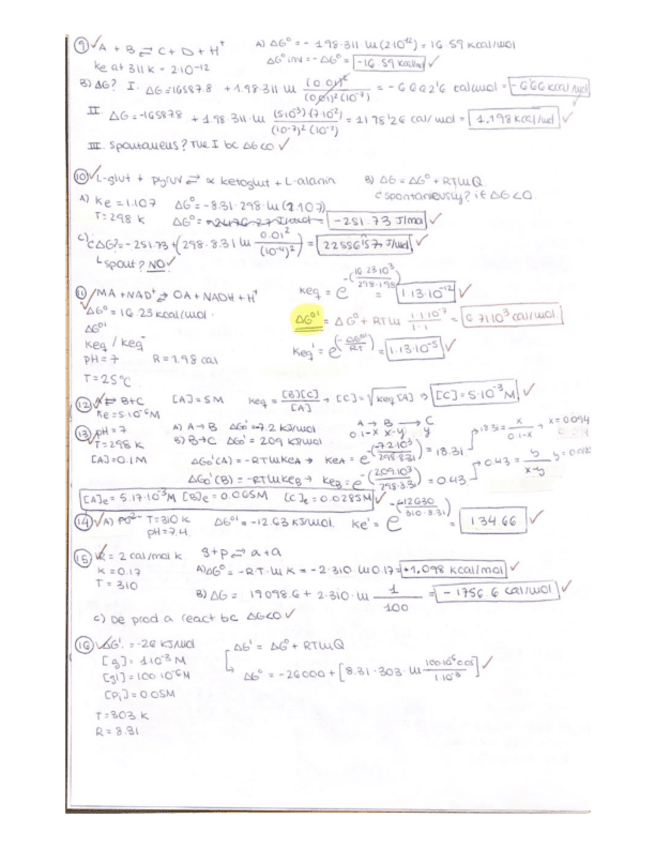 ⑨ ✓ A + B ⇄ C + D + H⁺ A) ΔG⁰ = - 1.98·311·ln(2·10⁻¹²) = 16.59 Kcal/mol
Ke at 311 K = 2·10⁻¹² ΔG⁰inv = -ΔG⁰ = -16.59 Kcal/mol ✓
B) ΔG? I. ΔG = 16587.8 + 1.98·311 ln (0.01)² / (0.01)²(10⁻⁷) = cal/mol = Kcal/mol ✓
II. ΔG = -16587.8 + 1.98·311·ln (5·10³)(7·10²) / (10⁻⁷)²(10⁻³) = 1178'26 cal/mol = 1.198 Kcal/mol ✓
III. Spontaneus? The I bc ΔG<0 ✓
⑩ ✓ L-glut + Pyruv ⇄ α ketoglut + L-alanin B) ΔG = ΔG⁰ + RTlnQ
A) Ke = 1.107 ΔG⁰ = -8.31·298·ln(1.107) Spontaneously? if ΔG<0
T = 298 K ΔG⁰ = = -251.73 J/mol ✓
C) ΔG? = -251.73 + (298·8.31 ln 0.01² / (10⁻⁴)²) = J/mol ✓
↳ Spont? NO ✓
⑪ ✓ MA + NAD⁺ ⇄ OA + NADH + H⁺ Keq = e^-(16.23·10³ / 298·1.98) = 1.13·10⁻¹² ✓
ΔG⁰ = 16.23 Kcal/mol · ΔG⁰' = ΔG⁰ + RTln 1·1·10⁻⁷ / 1·1 = 6.71·10³ cal/mol
ΔG⁰'
Keq / Keq' Keq' = e^(-ΔG⁰' / RT) = 1.13·10⁻⁵ ✓
pH = 7 R = 1.98 cal
T = 25°C
⑫ A ⇄ B+C [A] = 5M Keq = [B][C] / [A] → [C] = √Keq[A] → [C] = 5·10⁻³ M ✓
Ke = 5·10⁻⁶ M
⑬ pH = 7 A) A→B ΔG₀' = -7.2 KJ/mol A → B → C 18.31 = x / 0.1-x → x = 0.094
T = 298 K B) B→C ΔG₀' = 2.09 KJ/mol 0.1-x x-y y
[A] = 0.1M ΔG₀'(A) = -RTlnKeA → KeA = e^-(-7.2·10³ / 298·8.31) = 18.31 0.43 = y / x-y
ΔG₀'(B) = -RTlnKeB → KeB = e^-(2.09·10³ / 298·8.31) = 0.43
[A]e = 5.17·10⁻³ M [B]e = 0.065M [C]e = 0.0285M ✓
⑭ ✓ A) T = 310 K ΔG⁰' = -12.63 KJ/mol. Ke' = e^-(-12630 / 310·8.31) = 134.66 ✓
pH = 7.4
⑮ R = 2 cal/mol K g+p ⇄ a+a
K = 0.17 A) ΔG⁰ = -R·T·ln K = -2·310·ln 0.17 = +1.098 Kcal/mol ✓
T = 310 B) ΔG = 1098.6 + 2·310·ln 1 / 100 = -1756.6 cal/mol ✓
C) De prod a react bc ΔG<0 ✓
⑯ ΔG'. = -26 KJ/mol ΔG' = ΔG⁰ + RTlnQ
[g] = 1·10⁻³ M ΔG⁰ = -26000 + [8.31·303·ln 100·10⁻⁶·0.05 / 1·10⁻³] ✓
[g1] = 100·10⁻⁶ M
[Pi] = 0.05M
T = 303 K
R = 8.31